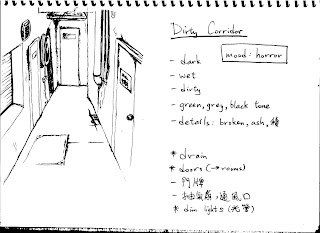 Dirty Corridor
mood: horror
- dark
- wet
- dirty
- green, grey, black tone
- details: broken, ash,
* drain
* doors (→rooms)
- 門牌
- 抽氣扇, 通風口
* dim lights (光管)